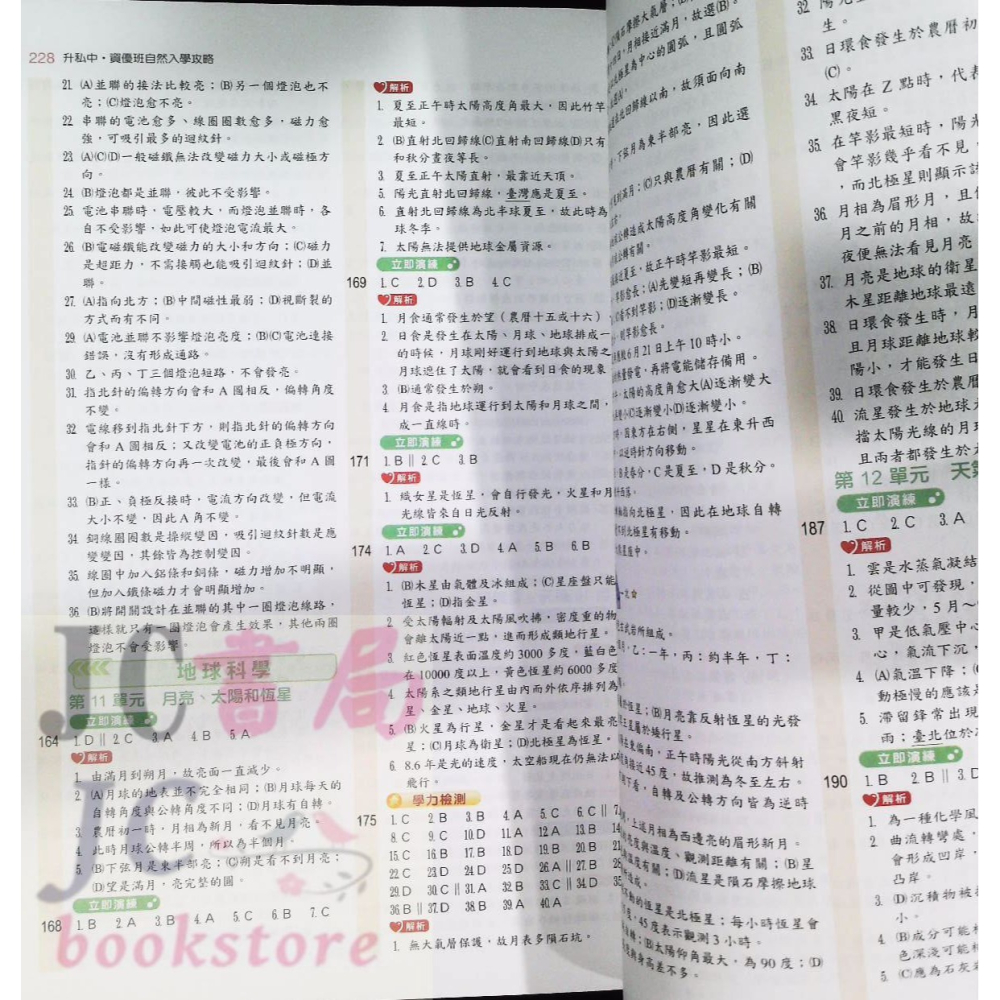 228 升私中・資優班自然入學攻略
21. (A)並聯的接法比較亮；(B)另一個燈泡也不
亮；(C)燈泡愈不亮。
22. 串聯的電池愈多、線圈圈數愈多，磁力愈
強，可吸引最多的迴紋針。
23. (A)(C)(D)一般磁鐵無法改變磁力大小或磁極方
向。
24. (B)燈泡都是並聯，彼此不受影響。
25. 電池串聯時，電壓較大，而燈泡並聯時，各
自不受影響，如此可使燈泡電流最大。
26. (B)電磁鐵能改變磁力的大小和方向；(C)磁力
是超距力，不需接觸也能吸引迴紋針；(D)並
聯。
27. (A)指向北方；(B)中間磁性最弱；(D)視斷裂的
方式而有不同。
29. (A)電池並聯不影響燈泡亮度；(B)(C)電池連接
錯誤，沒有形成通路。
30. 乙、丙、丁三個燈泡短路，不會發亮。
31. 指北針的偏轉方向會和 A 圖相反，偏轉角度
不變。
32. 電線移到指北針下方，則指北針的偏轉方向
會和 A 圖相反；又改變電池的正負極方向，
指針的偏轉方向再一次改變，最後會和 A 圖
一樣。
33. (B)正、負極反接時，電流方向改變，但電流
大小不變，因此 A 角不變。
34. 銅線圈圈數是操縱變因，吸引迴紋針數是應
變變因，其餘皆為控制變因。
35. 線圈中加入鋁條和銅條，磁力增加不明顯，
但加入鐵條磁力才會明顯增加。
36. (B)將開關設計在並聯的其中一圈燈泡線路，
這樣就只有一圈燈泡會產生效果，其他兩圈
燈泡不會受影響。
地球科學
第 11 單元 月亮、太陽和恆星
立即演練
164 1. D ‖ 2. C 3. A 4. B 5. A
解析
1. 由滿月到朔月，故亮面一直減少。
2. (A)月球的地表並不完全相同；(B)月球每天的
自轉角度與公轉角度不同；(D)月球有自轉。
3. 農曆初一時，月相為新月，看不見月亮。
4. 此時月球公轉半周，所以為半個月。
5. (B)下弦月是東半部亮；(C)朔是看不到月亮；
(D)望是滿月，亮完整的圓。
立即演練
168 1. B 2. A 3. B 4. A 5. C 6. B 7. C
解析
1. 夏至正午時太陽高度角最大，因此竹竿
最短。
2. (B)直射北回歸線(C)直射南回歸線(D)只有
和秋分晝夜等長。
3. 夏至正午太陽直射，最靠近天頂。
5. 陽光直射北回歸線，臺灣應是夏至。
6. 直射北回歸線為北半球夏至，故此時為
球冬季。
7. 太陽無法提供地球金屬資源。
立即演練
169 1. C 2. D 3. B 4. C
解析
1. 月食通常發生於望（農曆十五或十六）
2. 日食是發生在太陽、月球、地球排成一
的時候，月球剛好運行到地球與太陽之
月球遮住了太陽，就會看到日食的現象
3. (B)通常發生於朔。
4. 月食是指地球運行到太陽和月球之間，
成一直線時。
立即演練
171 1. B ‖ 2. C 3. B
解析
1. 織女星是恆星，會自行發光，火星和月
光線皆來自日光反射。
立即演練
174 1. A 2. C 3. D 4. A 5. B 6. B
解析
1. (B)木星由氣體及冰組成；(C)星座盤只能
恆星；(D)指金星。
2. 受太陽輻射及太陽風吹拂，密度重的物
會離太陽近一點，進而形成類地行星。
3. 紅色恆星表面溫度約 3000 多度，藍白色
在 10000 度以上，黃色恆星約 6000 多度
4. 太陽系之類地行星由內而外依序排列為
星、金星、地球、火星。
5. (B)火星為行星，金星才是看起來最亮
星；(C)月球為衛星；(D)北極星為恆星。
6. 8.6 年是光的速度，太空船現在仍無法以
飛行。
學力檢測
175 1. C 2. B 3. B 4. A 5. C 6. C ‖ 7.
8. C 9. C 10. D 11. A 12. A 13. B 14
15. C 16. B 17. B 18. D 19. B 20. B 21
22. C 23. D 24. D 25. D 26. A ‖ 27. B 28
29. D 30. C ‖ 31. A 32. B 33. C ‖ 34. D 35
36. B ‖ 37. D 38. B 39. A 40. A
解析
1. 無大氣層保護，故月表多隕石坑。
，月相接近滿月，故選(B)。
極星為中心的圓弧，且圓弧
北回歸線以南，故須面向南
，下弦月為東半部亮，因此選
滿月；(C)只與農曆有關；(D)
公轉造成太陽高度角變化有關
近夏至，故正午時竿影最短。
影愈長；(A)先變短再變長；(B)
看不到竿影；(D)逐漸變長。
，則竿影愈長。
6月21日上午10時小。
熱量發電，再將電能儲存備用。
，太陽的高度角愈大(A)逐漸變大
變小(C)逐漸變小(D)逐漸變小。
，因東方在右側，星星在東升西
以逆時針方向移動。
B是春分，C是夏至，D是秋分。
軸指向北極星，因此在地球自轉
不到北極星有移動。
武岩所組成。
，乙：一年，丙：約半年，丁：
恆星；(B)月亮靠反射恆星的光發
王星屬於矮行星。
在東偏南，正午時陽光從南方斜射
接近45度，故推測為冬至左右。
下看，自轉及公轉方向皆為逆時
，上述月相為西邊亮的眉形新月。
亮度與溫度、觀測距離有關；(B)星
溫度有關；(D)流星是隕石摩擦地球
所造成。
不動的恆星是北極星；每小時恆星會
度，45度表示觀測3小時。
自轉；(B)太陽仰角最大，為90度；(D)
與身高差不多。
生。
33. 日環食發生於農曆初
(C)。
34. 太陽在 Z 點時，代表
黑夜短。
35. 在竿影最短時，陽光
會竿影幾乎看不見，
，而北極星則顯示該
36. 月相為眉形月，且
月之前的月相，故
夜便無法看見月亮
37. 月亮是地球的衛星
木星距離地球最遠
38. 日環食發生時，月
且月球距離地球較
陽小，才能發生日
39. 日環食發生於農曆
40. 流星發生於地球大
擋太陽光線的月球
且兩者都發生於
第 12 單元 天氣
立即演練
187 1. C 2. C 3. A
解析
1. 雲是水蒸氣凝結
2. 從圖中可發現，
量較少，5 月～
3. 甲是低氣壓中心
心，氣流下沉，
4. (A)氣溫下降；
動極慢的應該是
5. 滯留鋒常出現
雨；臺北位於
立即演練
190 1. B 2. B ‖ 3. D
解析
1. 為一種化學風
2. 曲流轉彎處，
會形成凹岸，
凸岸。
3. (D)沉積物被
小。
4. (B)成分可能
色深淺可能
5. (C)應為石灰
JC書局
JC
bookstore